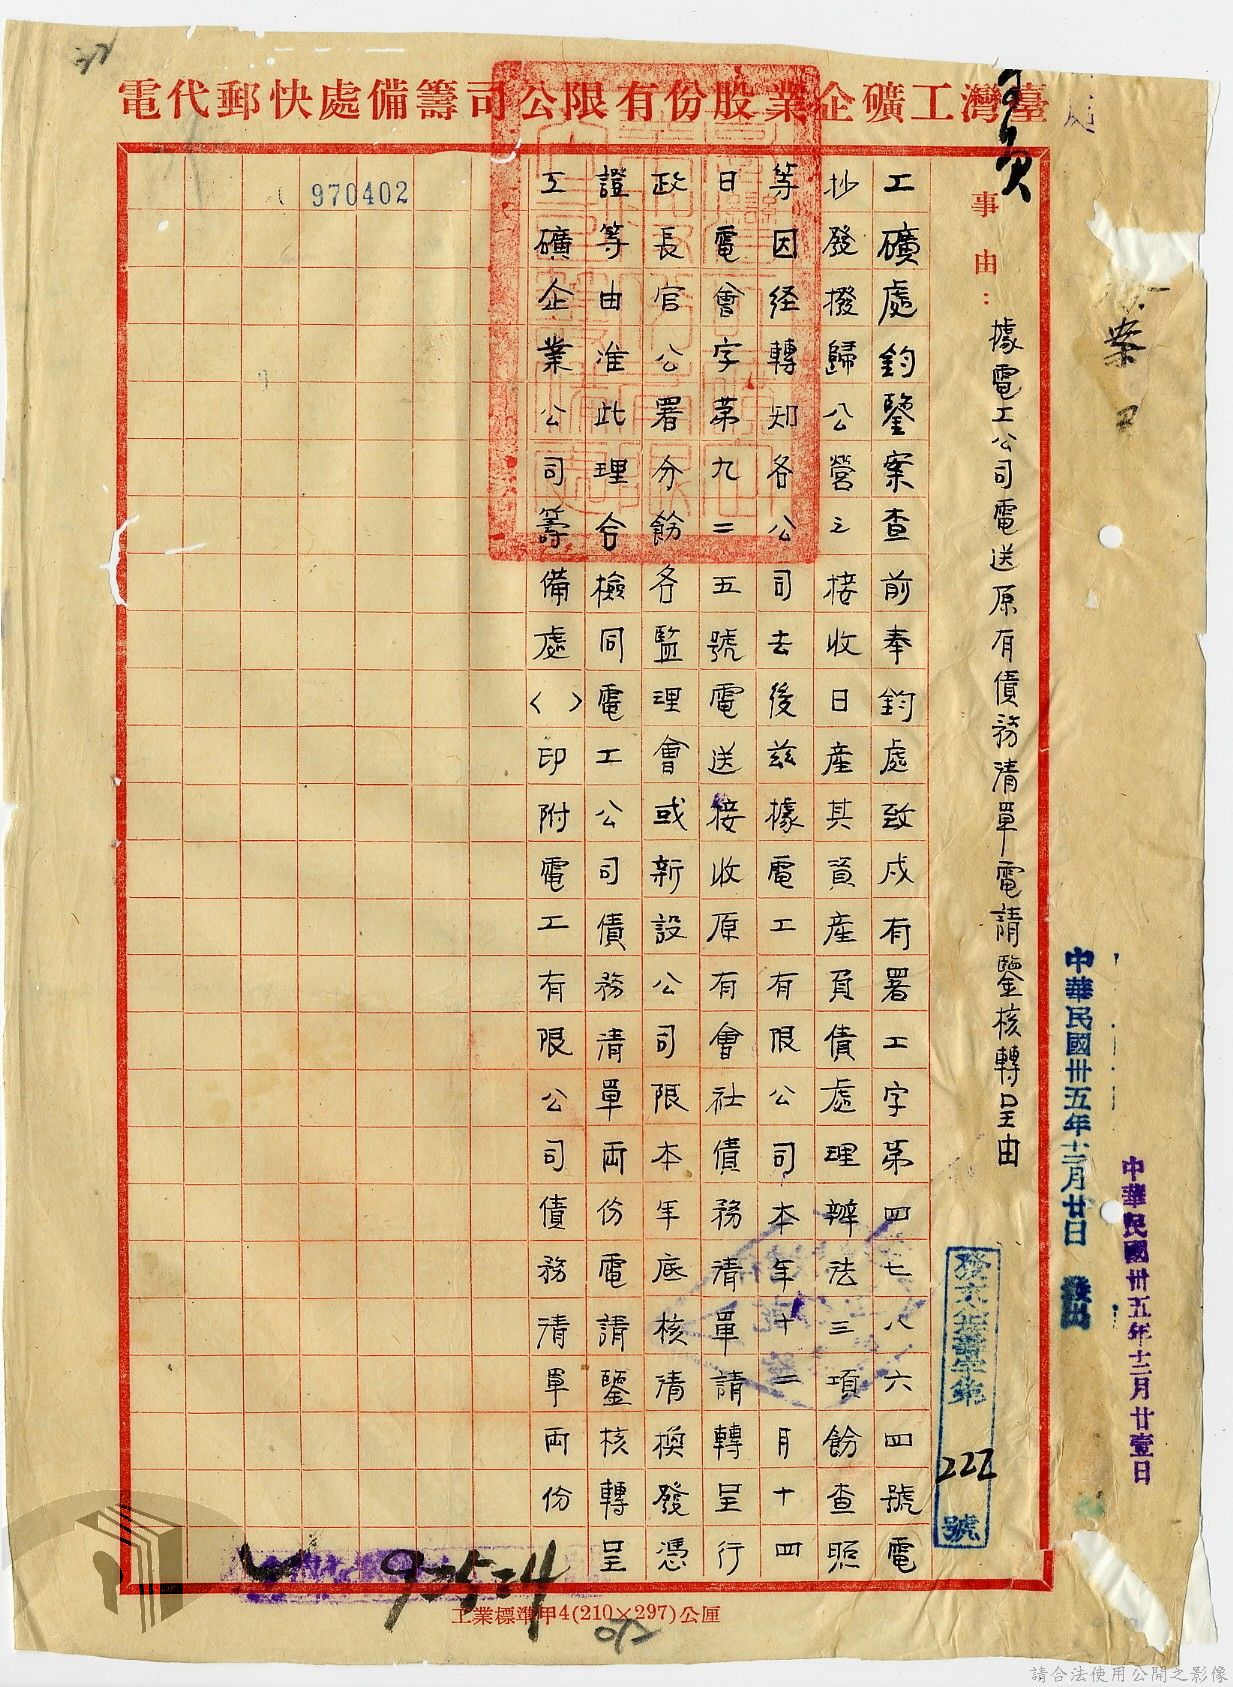 臺灣工礦企業股份有限公司籌備處快郵代電
事由：據電工公司電送原有債務清單電請鑒核轉呈由
工礦處鈞鑒案查前奉鈞處致戌有署工字第四七八六四號電
抄發撥歸公營之接收日產其資產負債處理辦法三項飭查照
等因経轉知各公司去後茲據電工有限公司本年十二月十四
日電會字第九二五號電送接收原有會社債務清單請轉呈行
政長官公署分飭各監理會或新設公司限本年底核清換發憑
證等由准此理合檢同電工公司債務清單両份電請鑒核轉呈
工礦企業公司籌備處〈〉印附電工有限公司債務清單両份
970402
中華民國卅五年十二月廿日 發出
中華民國卅五年十二月廿壹日
222
號
工業標準甲4(210×297)公厘
請合法使用公開之影像